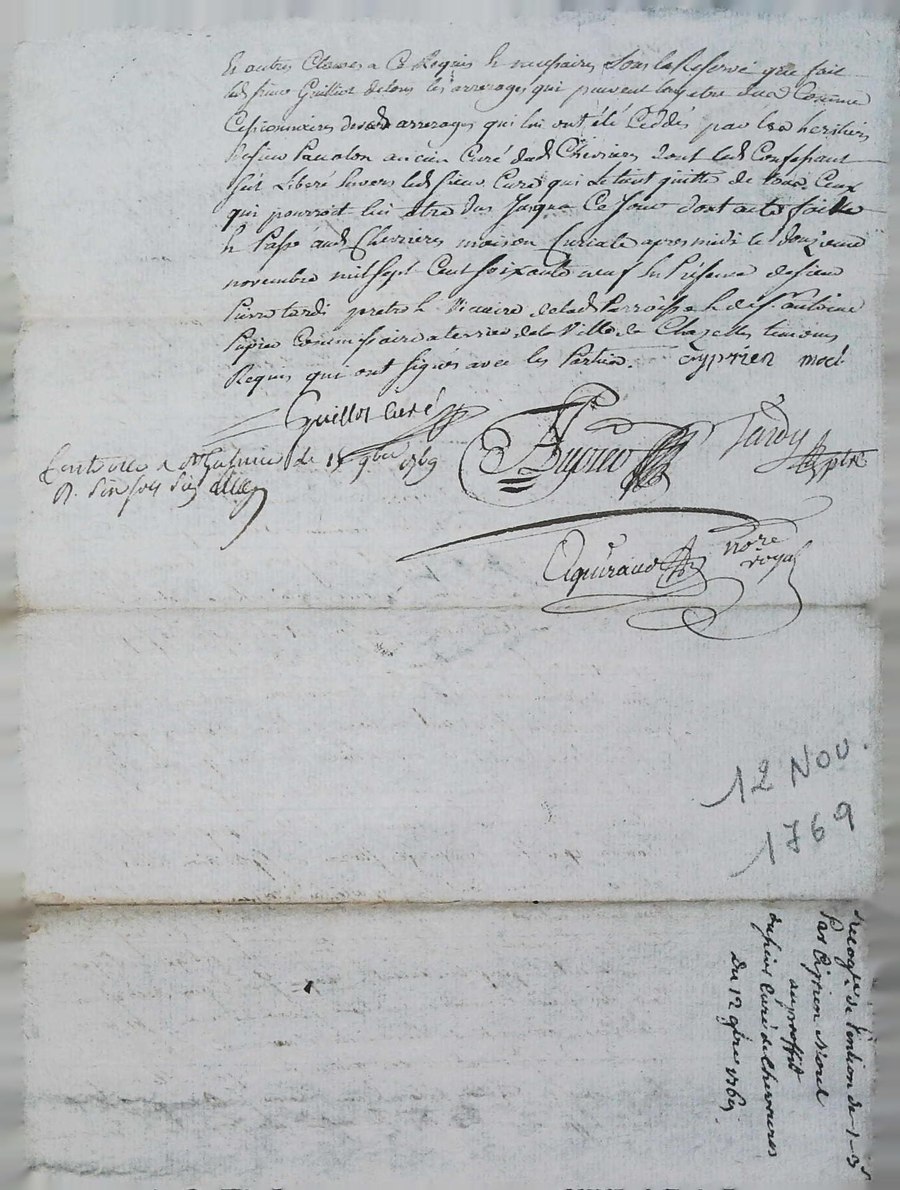 Et autres Clauses a Ce Requis & necessaires Sous la Reserve que fait
led. sieur Guilliot de tous les arrerages qui peuvent luy etre dus Comme
Cessionnaires desd. arrerages qui lui ont été Ceddés par les heritiers
de sieur ancien Curé dud. Chevrieres dont led. Confessant
s'est Liberé envers led. sieur Curé qui le tient quitte de tous Ceux
qui pourroit lui etre dus Jusqua Ce Jour dont acte fait
& Passé aud. Chevrieres maison Curiale apres midi le douzieme
novembre mil sept Cent soixante neuf En Présence de sieur
Pierre tardi pretre & Vicaire de lad. Parroisse & de sr. antoine
Pupier Commissaire a terrier de la Ville de Chazelles temoins
Requis qui ont signés avec les Parties. cyprien
Guillot Curé
APupier
Tardy ptre
Controllé a St Galmier le 9bre 1769
R.
Aguiraud nore royal
12 NOV.
1769
de Pention de
Par Ciprien
au proffit
du sieur Curé de Chevrieres
Du 12 9bre 1769.